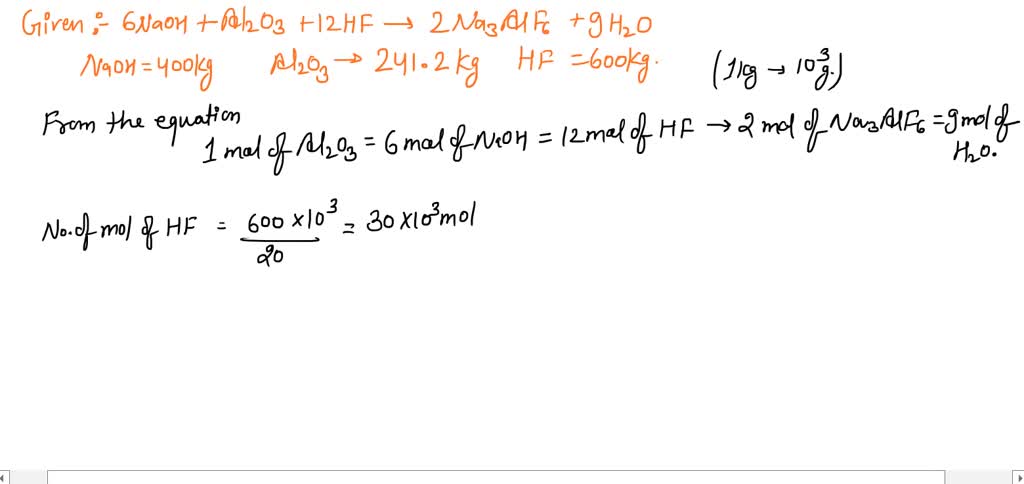 Given :- 6NaOH + Al2O3 + 12HF → 2Na3AlF6 + 9H2O
NaOH = 400kg Al2O3 → 241.2 kg HF = 600kg. (1kg → 10³g.)
From the equation
1 mol of Al2O3 = 6 mol of NaOH = 12 mol of HF → 2 mol of Na3AlF6 = 9 mol of
H2O.
No. of mol of HF = 600 × 10³ / 20 = 30 × 10³ mol